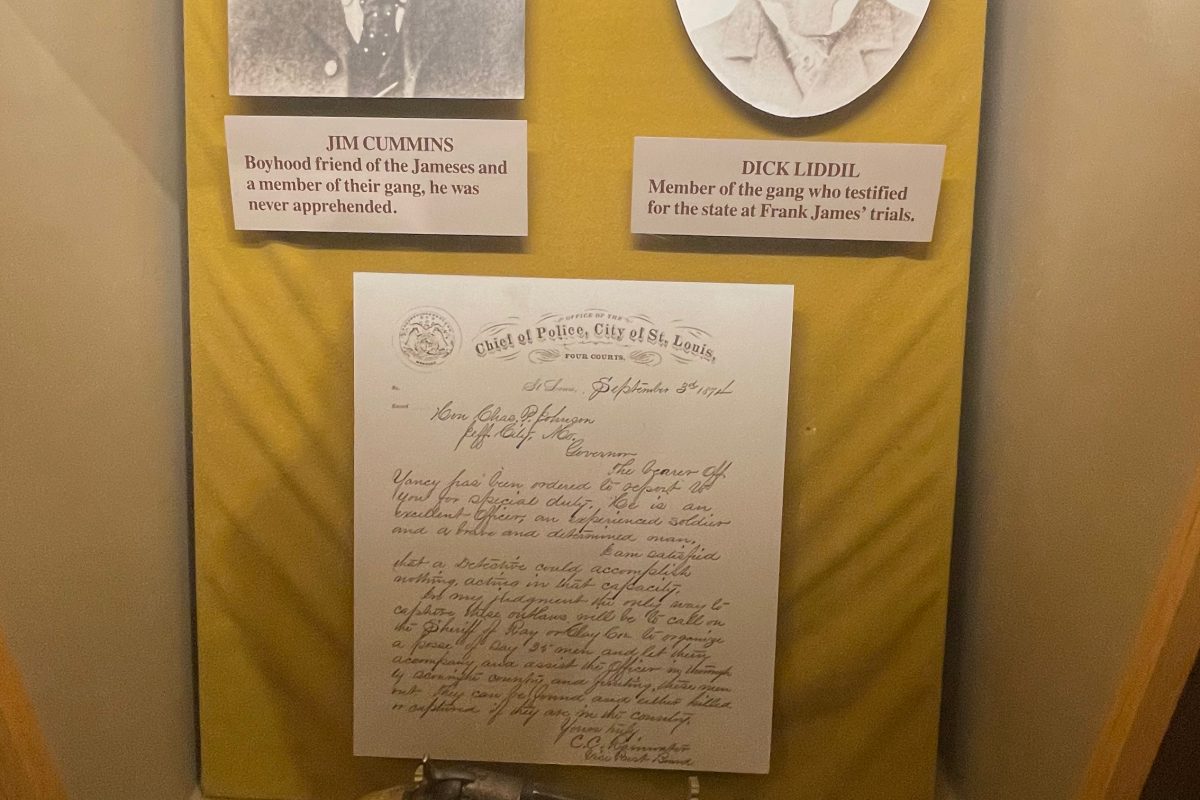 JIM CUMMINS
Boyhood friend of the Jameses and
a member of their gang, he was
never apprehended.
DICK LIDDIL
Member of the gang who testified
for the state at Frank James' trials.
OFFICE OF THE
Chief of Police, City of St. Louis,
FOUR COURTS.
St Louis, September 3rd 1874
No.
Hon Chas. P. Johnson
Jeff. City, Mo.
Governor
The bearer Off.
Yancy has been ordered to report to
you for special duty. He is an
excellent Officer, an experienced soldier
and a brave and determined man.
I am satisfied
that a Detective could accomplish
nothing, acting in that capacity.
In my judgment the only way to
capture these outlaws will be to call on
the Sheriff of Ray or Clay Co. to organize
a posse of say 25 men and let them
accompany and assist the Officer in
country and these men
out. They can be found and either killed
or captured if they are in the country.
Yours truly
C.C. Rainwater
Vice Prest Board